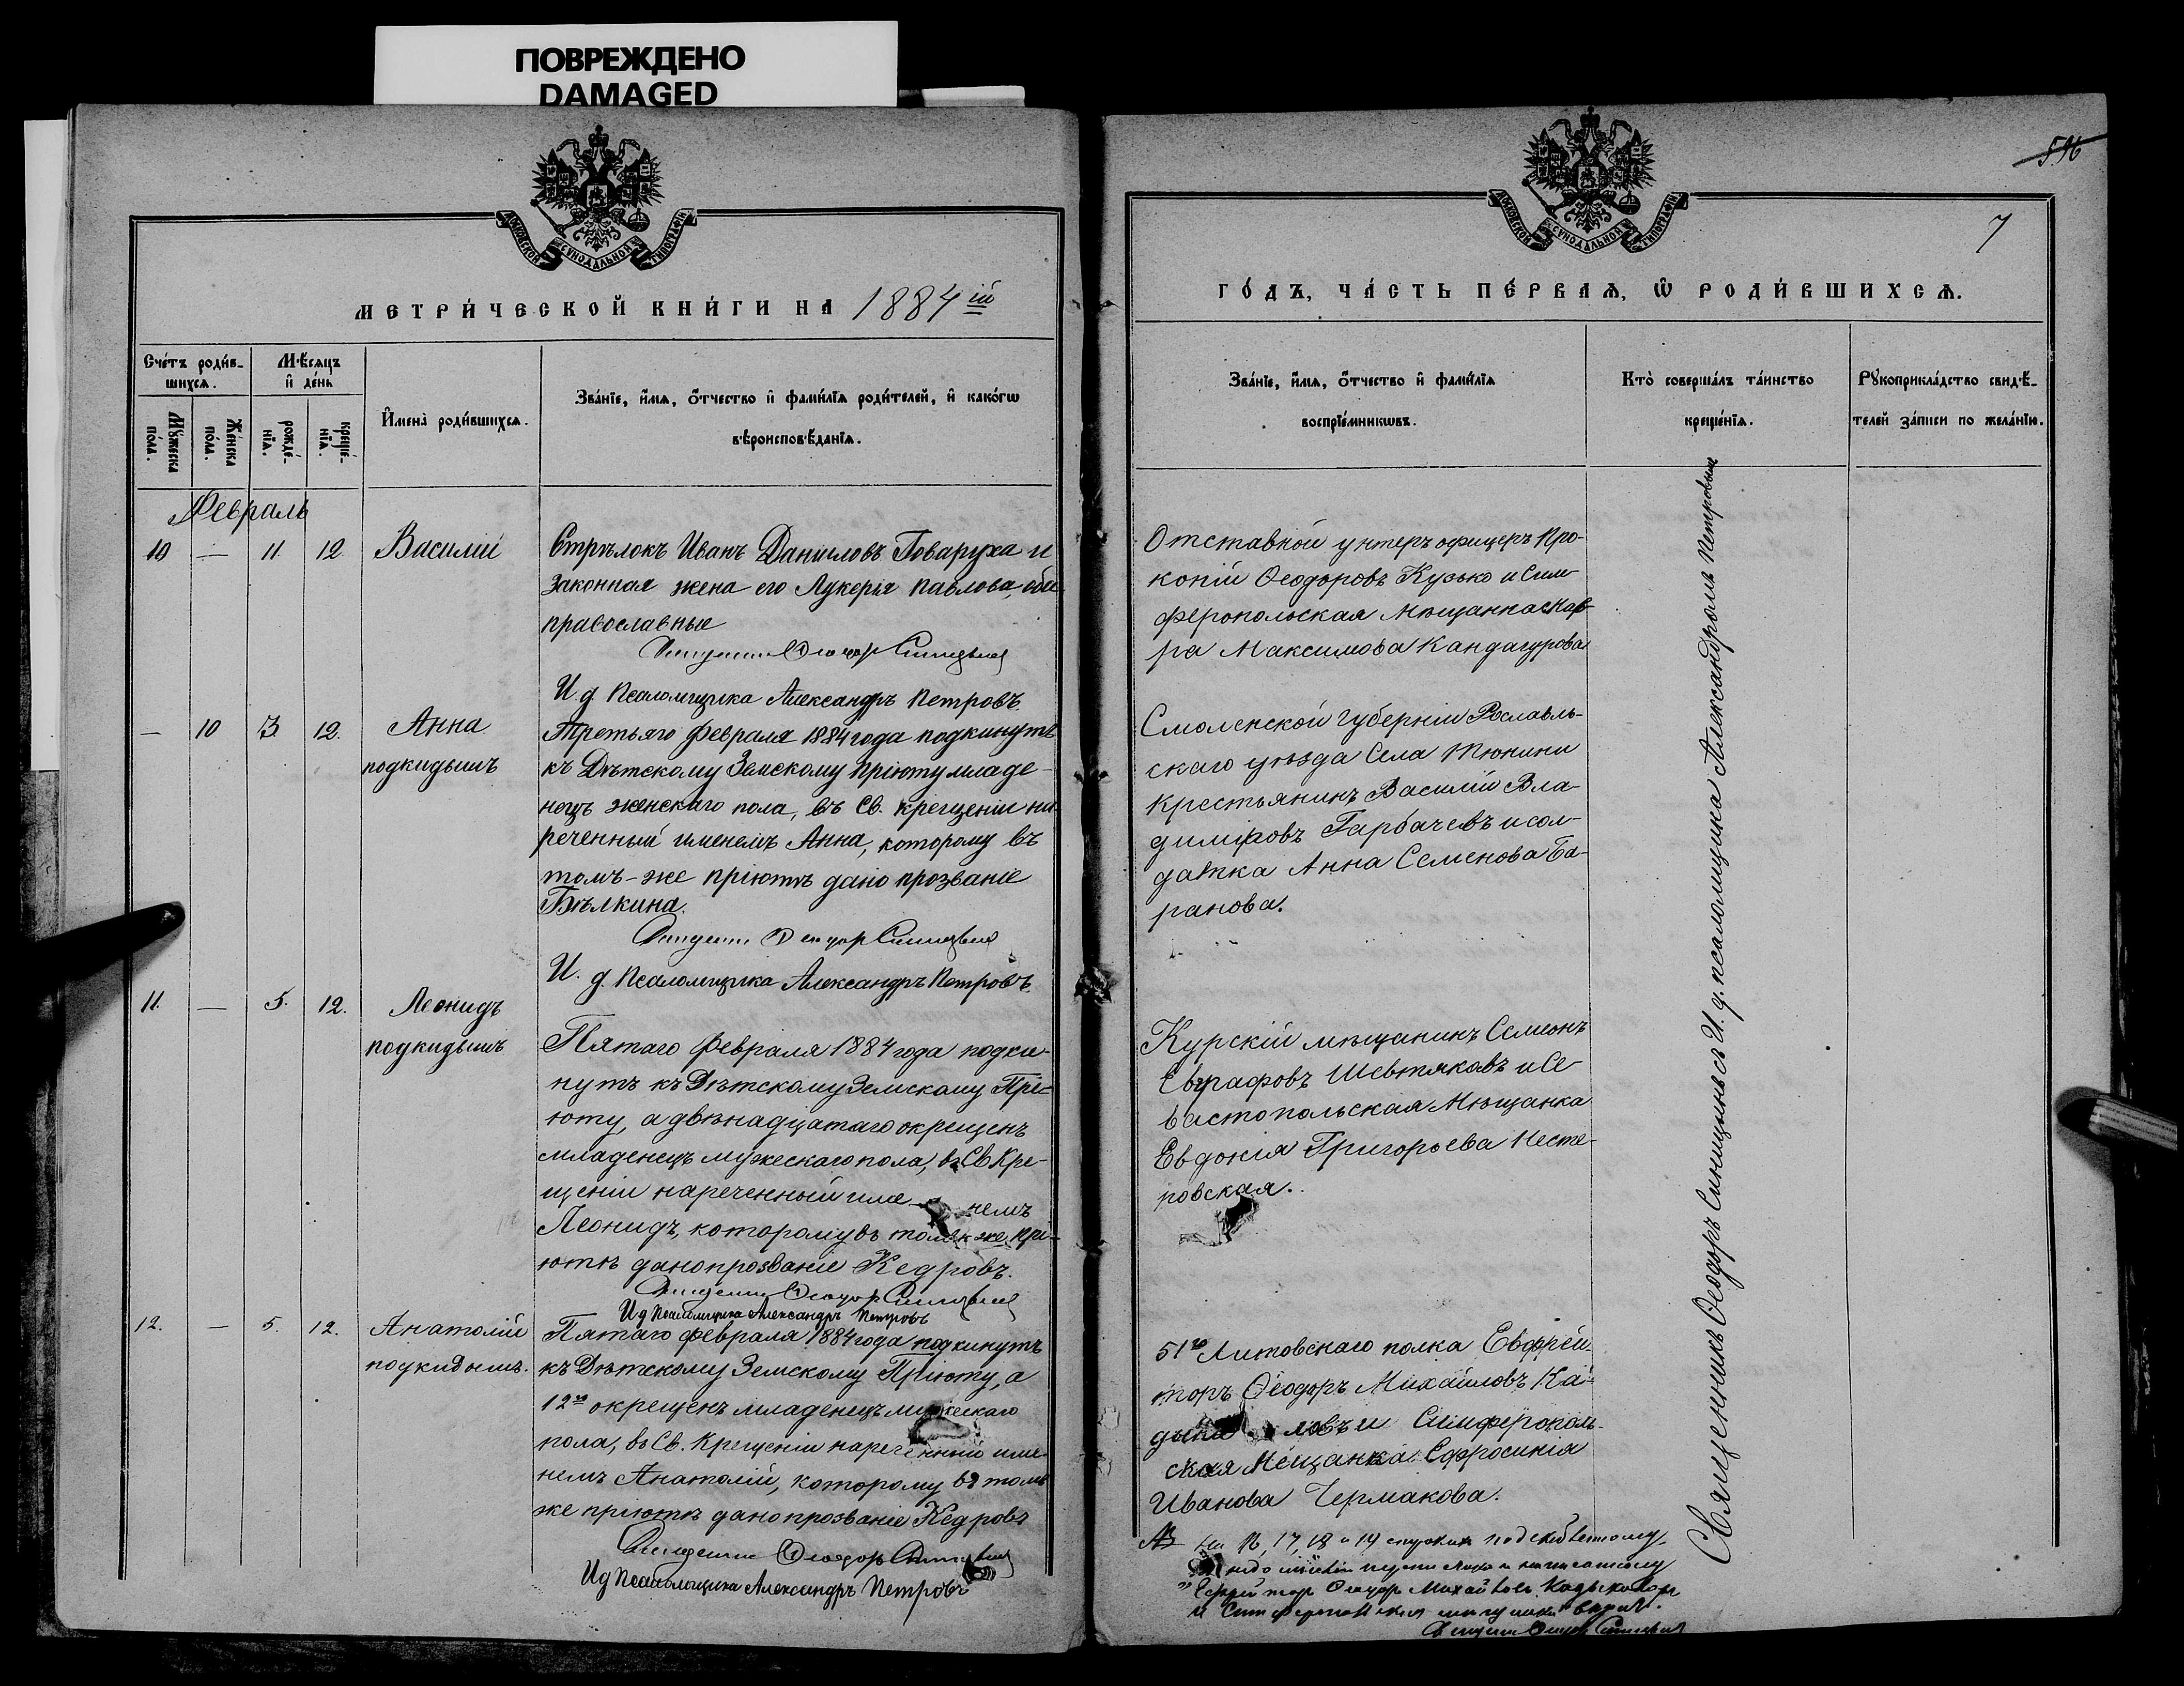 ПОВРЕЖДЕНО
DAMAGED
МОСКОВСКОЙ СѴНОДАЛЬНОЙ ТИПОГРАФІИ
МЕТРИ́ЧЕСКОЙ КНИ́ГИ НА 1884 ій
Сче́тъ роди́в-
шихсѧ.
Мѣ́сѧцъ
и҆ де́нь
И҆мена̀ роди́вшихсѧ.
Зва́нїе, и҆́мѧ, ѻ҆́тчество и҆ фами́лїѧ роди́телей, и҆ како́гѡ
вѣроисповѣ́данїѧ.
Мꙋ́жеска
по́ла.
Же́нска
по́ла.
рожде́-
нїѧ.
креще́-
нїѧ.
Февраль
10 — 11 12 Василій
Стрѣлокъ Иванъ Даниловъ Поваруха и
законная жена его Лукерія Павлова, оба
православные
Священникъ Ѳеодоръ Синицынъ
И. д. Псаломщика Александръ Петровъ.
— 10 3. 12. Анна
подкидышъ
Третьяго Февраля 1884 года подкинутъ
къ Дѣтскому Земскому Пріюту младе-
нецъ женскаго пола, въ Св. крещеніи на-
реченный именемъ Анна, которому въ
томъ-же пріютѣ дано прозваніе
Бѣлкина.
Священникъ Ѳеодоръ Синицынъ
И. д. Псаломщика Александръ Петровъ
11. — 5. 12. Леонидъ
подкидышъ
Пятаго Февраля 1884 года подки-
нутъ къ Дѣтскому Земскому Прі-
юту, а двѣнадцатаго окрещенъ
младенецъ мужескаго пола, въ Св Кре-
щеніи нареченный име-немъ
Леонидъ, которому въ томъ же прі-
ютѣ дано прозваніе Кедровъ.
Священникъ Ѳеодоръ Синицынъ
И д Псаломщика Александръ Петровъ
12. — 5. 12. Анатолій
подкидышъ.
Пятаго февраля 1884 года подкинутъ
къ Дѣтскому Земскому Пріюту, а
12го окрещенъ младенецъ мужескаго
пола, въ Св. Крещеніи нареченный име-
немъ Анатолій, которому въ томъ
же пріютѣ дано прозваніе Кедровъ
Священникъ Ѳеодоръ Синицынъ
И д Псаломщика Александръ Петровъ
596
7
МОСКОВСКОЙ СѴНОДАЛЬНОЙ ТИПОГРАФІИ
ГО́ДЪ, ЧА́СТЬ ПЕ́РВАѦ, Ѡ҆ РОДИ́ВШИХСѦ.
Зва́нїе, и҆́мѧ, ѻ҆́тчество и҆ фами́лїѧ
воспрїе́мникѡвъ.
Кто̀ соверша́лъ та́инство
креще́нїѧ.
Рꙋкоприкла́дство свидѣ́-
телей за́писи по жела́нїю.
Отставной унтеръ офицеръ Про-
копій Ѳеодоровъ Кузько и Сим-
феропольская Мѣщанка Мав-
ра Максимова Кандагурова
Смоленской Губерніи Рославль-
скаго уѣзда Села Тюнини
крестьянинъ Василій Вла-
диміровъ Гарбачевъ и сол-
датка Анна Семенова Ба-
ранова.
Курскій мѣщанинъ Семіонъ
Евграфовъ Шевтяковъ и Се-
вастопольская Мѣщанка
Евдокія Григорьева Несте-
ровская.
51го Литовскаго полка Евфрей-
торъ Ѳеодоръ Михайловъ Ка-
дык ловъ и Симферополь-
ская Мѣщанка Ефросинія
Иванова Чермакова.
На 16, 17, 18 и 19 строкахъ
Ѳеодоръ Михайловъ
и Симферопольская мѣщанка вѣрить.
Священникъ Ѳеодоръ Синицынъ
Священникъ Ѳеодоръ Синицынъ съ И. д. псаломщика Александромъ Петровымъ